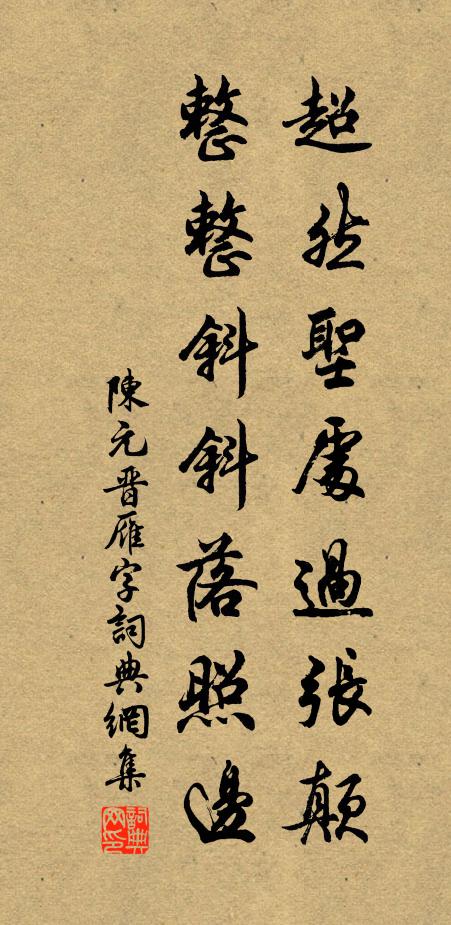 超然聖處過張顛
整整斜斜落照邊
陳元晉雁字詞典網集
詞典網印